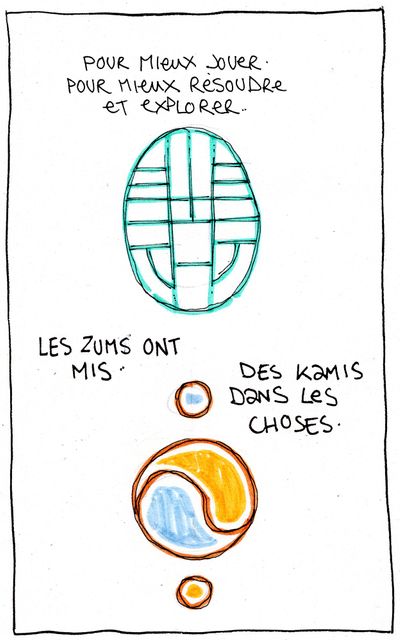 POUR MIEUX JOUER.
POUR MIEUX RESOUDRE
ET EXPLORER..
LES ZUMS ONT
MIS..
DES KAMIS
DANS LES
CHOSES.